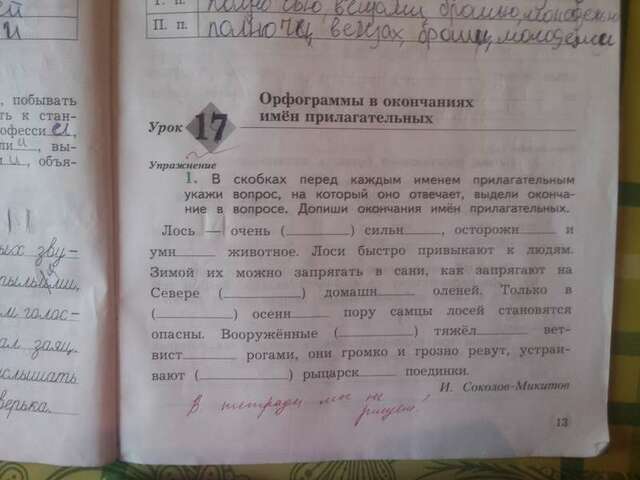 ей
и
Т. п.
П. п. полночи, вещах,
, побывать
ть к стан-
офесси ей,
ли и , вы-
и , объя-
ых зву-
пыльцами,
м голос-
ал заяц.
слышать
верька.
Урок 17
Орфограммы в окончаниях
имён прилагательных
Упражнение
1. В скобках перед каждым именем прилагательным
укажи вопрос, на который оно отвечает, выдели оконча-
ние в вопросе. Допиши окончания имён прилагательных.
Лось — очень (________) сильн____, осторожн____ и
умн____ животное. Лоси быстро привыкают к людям.
Зимой их можно запрягать в сани, как запрягают на
Севере (________) домашн____ оленей. Только в
(________) осенн____ пору самцы лосей становятся
опасны. Вооружённые (________) тяжёл____ вет-
вист____ рогами, они громко и грозно ревут, устраи-
вают (________) рыцарск____ поединки.
И. Соколов-Микитов
В тетради мы не
пишем!
13